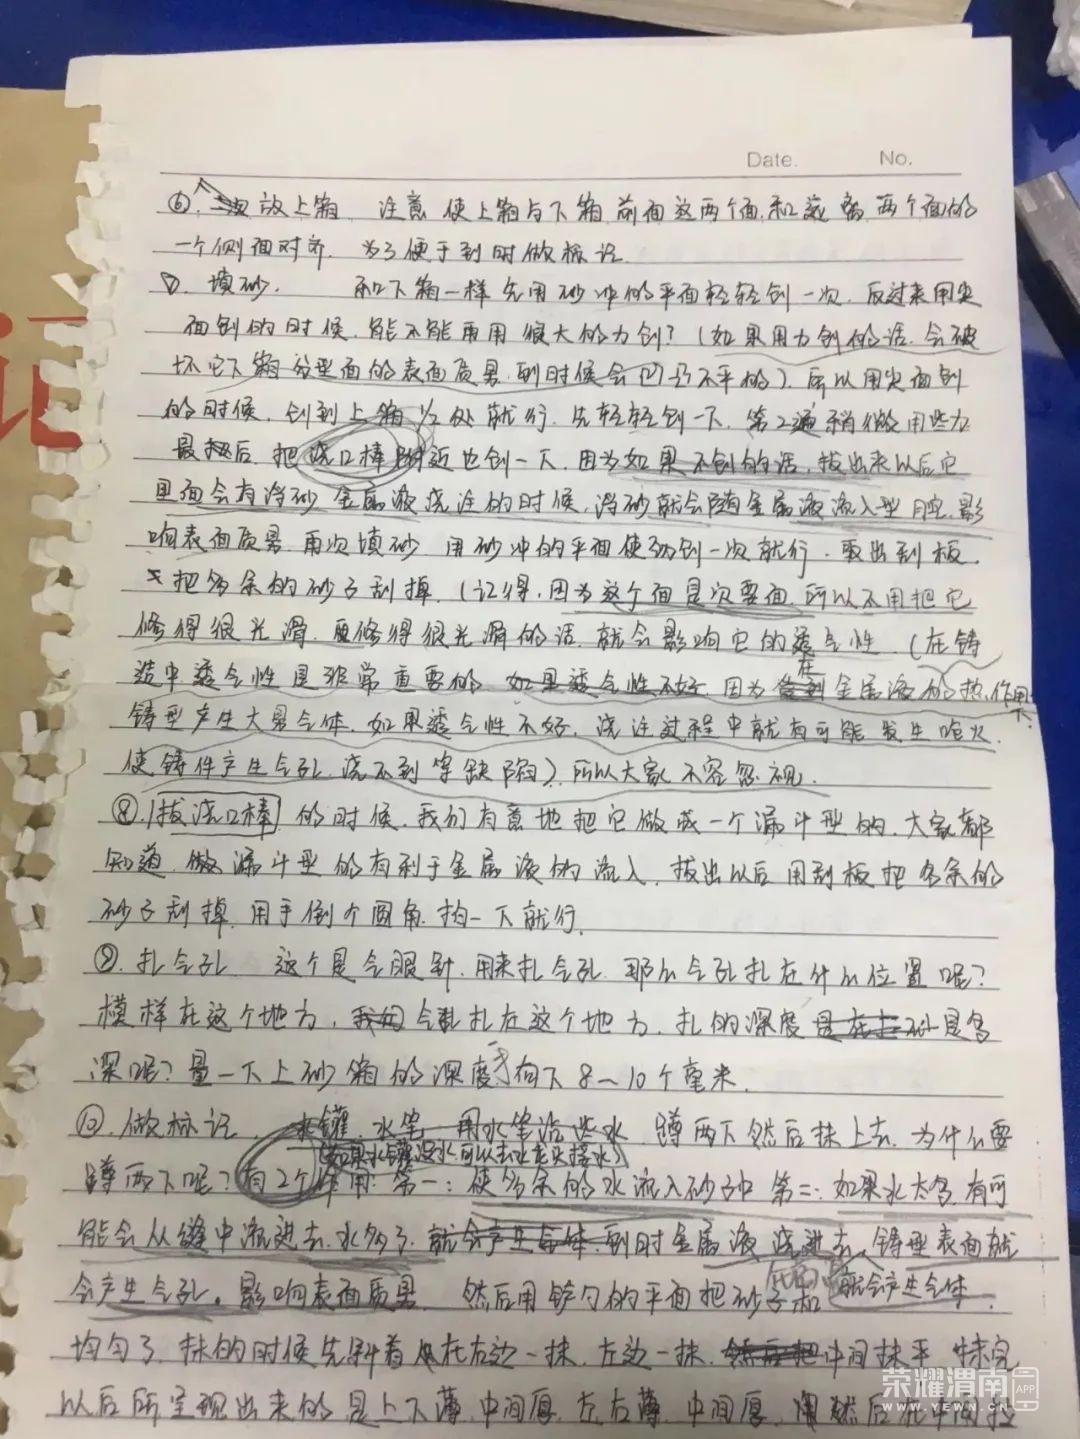 Date. No.
⑥. 放上箱. 注意 使上箱与下箱 前面这两个面,和 两个面的
一个侧面对齐. 为了便于到时做标记.
⑦. 填砂. 和下箱一样先用砂冲的平面轻轻刽一次. 反过来用尖
面刽的时候. 能不能再用很大的力刽?(如果用力刽的话. 会破
坏它下箱分型面的表面质量. 到时候会凹凸不平的). 所以用尖面刽
的时候. 刽到上箱½处就行. 先轻轻刽一下. 第2遍稍微用些力
最后. 把浇口棒附近也刽一下. 因为如果不刽的话. 拔出来以后它
里面会有浮砂 金属液浇注的时候, 浮砂就会随金属液流入型腔. 影
响表面质量. 再次填砂 用砂冲的平面使劲刽一次就行. 取出刮板.
把多余的砂子刮掉. (记得. 因为这个面是次要面. 所以不用把它
修得很光滑. 修得很光滑的话. 就会影响它的透气性. (在铸
造中透气性是非常重要的. 如果透气性不好. 因为在金属液的热作用下.
铸型产生大量气体. 如果透气性不好. 浇注过程中就有可能发生呛火.
使铸件产生气孔. 浇不到等缺陷). 所以大家不容忽视.
⑧. 拔浇口棒 的时候. 我们有意地把它做成一个漏斗型的. 大家都
知道. 做漏斗型的有利于金属液的流入. 拔出以后用刮板把多余的
砂子刮掉. 用手倒个圆角. 拍一下就行.
⑨. 扎气孔. 这个是气眼针. 用来扎气孔. 那么气孔扎在什么位置呢?
模样在这个地方. 气孔扎在这个地方. 扎的深度 是多
深呢? 量一下上砂箱的深度 向下8~10个毫米.
⑩. 做标记. 水罐. 水笔 用水笔沾些水. 蹲两下然后抹上去. 为什么要
(如果水罐没水可以去水龙头接水)
蹲两下呢? 有2个作用: 第一: 使多余的水流入砂子中 第二: 如果水太多. 有可
能会从缝中流进去. 水多了. 就会产生气体. 到时金属液浇进去. 铸型表面就
会产生气孔. 影响表面质量. 然后用铲勺的平面把砂子和 就会产生气体.
均匀了. 抹的时候先斜着 在右边一抹. 左边一抹. 中间抹平 抹完
以后所呈现出来的是上下薄. 中间厚. 左右薄. 中间厚. 然后在中间拉
荣耀渭南 APP
WWW.YEWN.CN